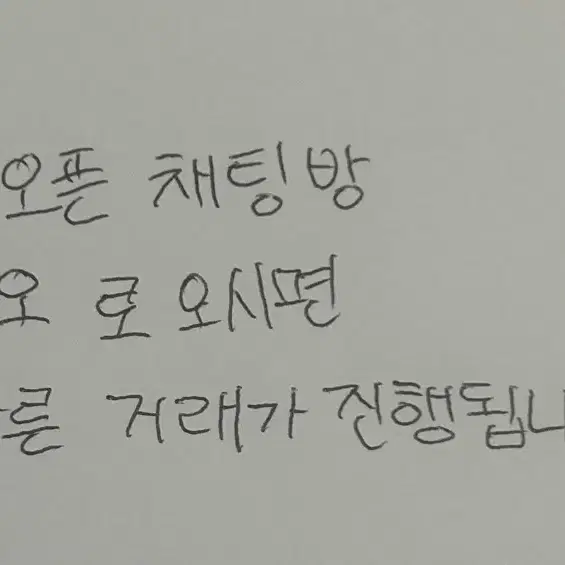 오픈 채팅방
오 로 오시면
른 거래가 진행됩니